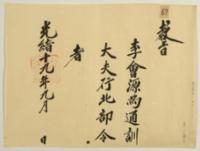 教旨
李會源為通訓
大夫行北部令
者
光緒十九年九月　日